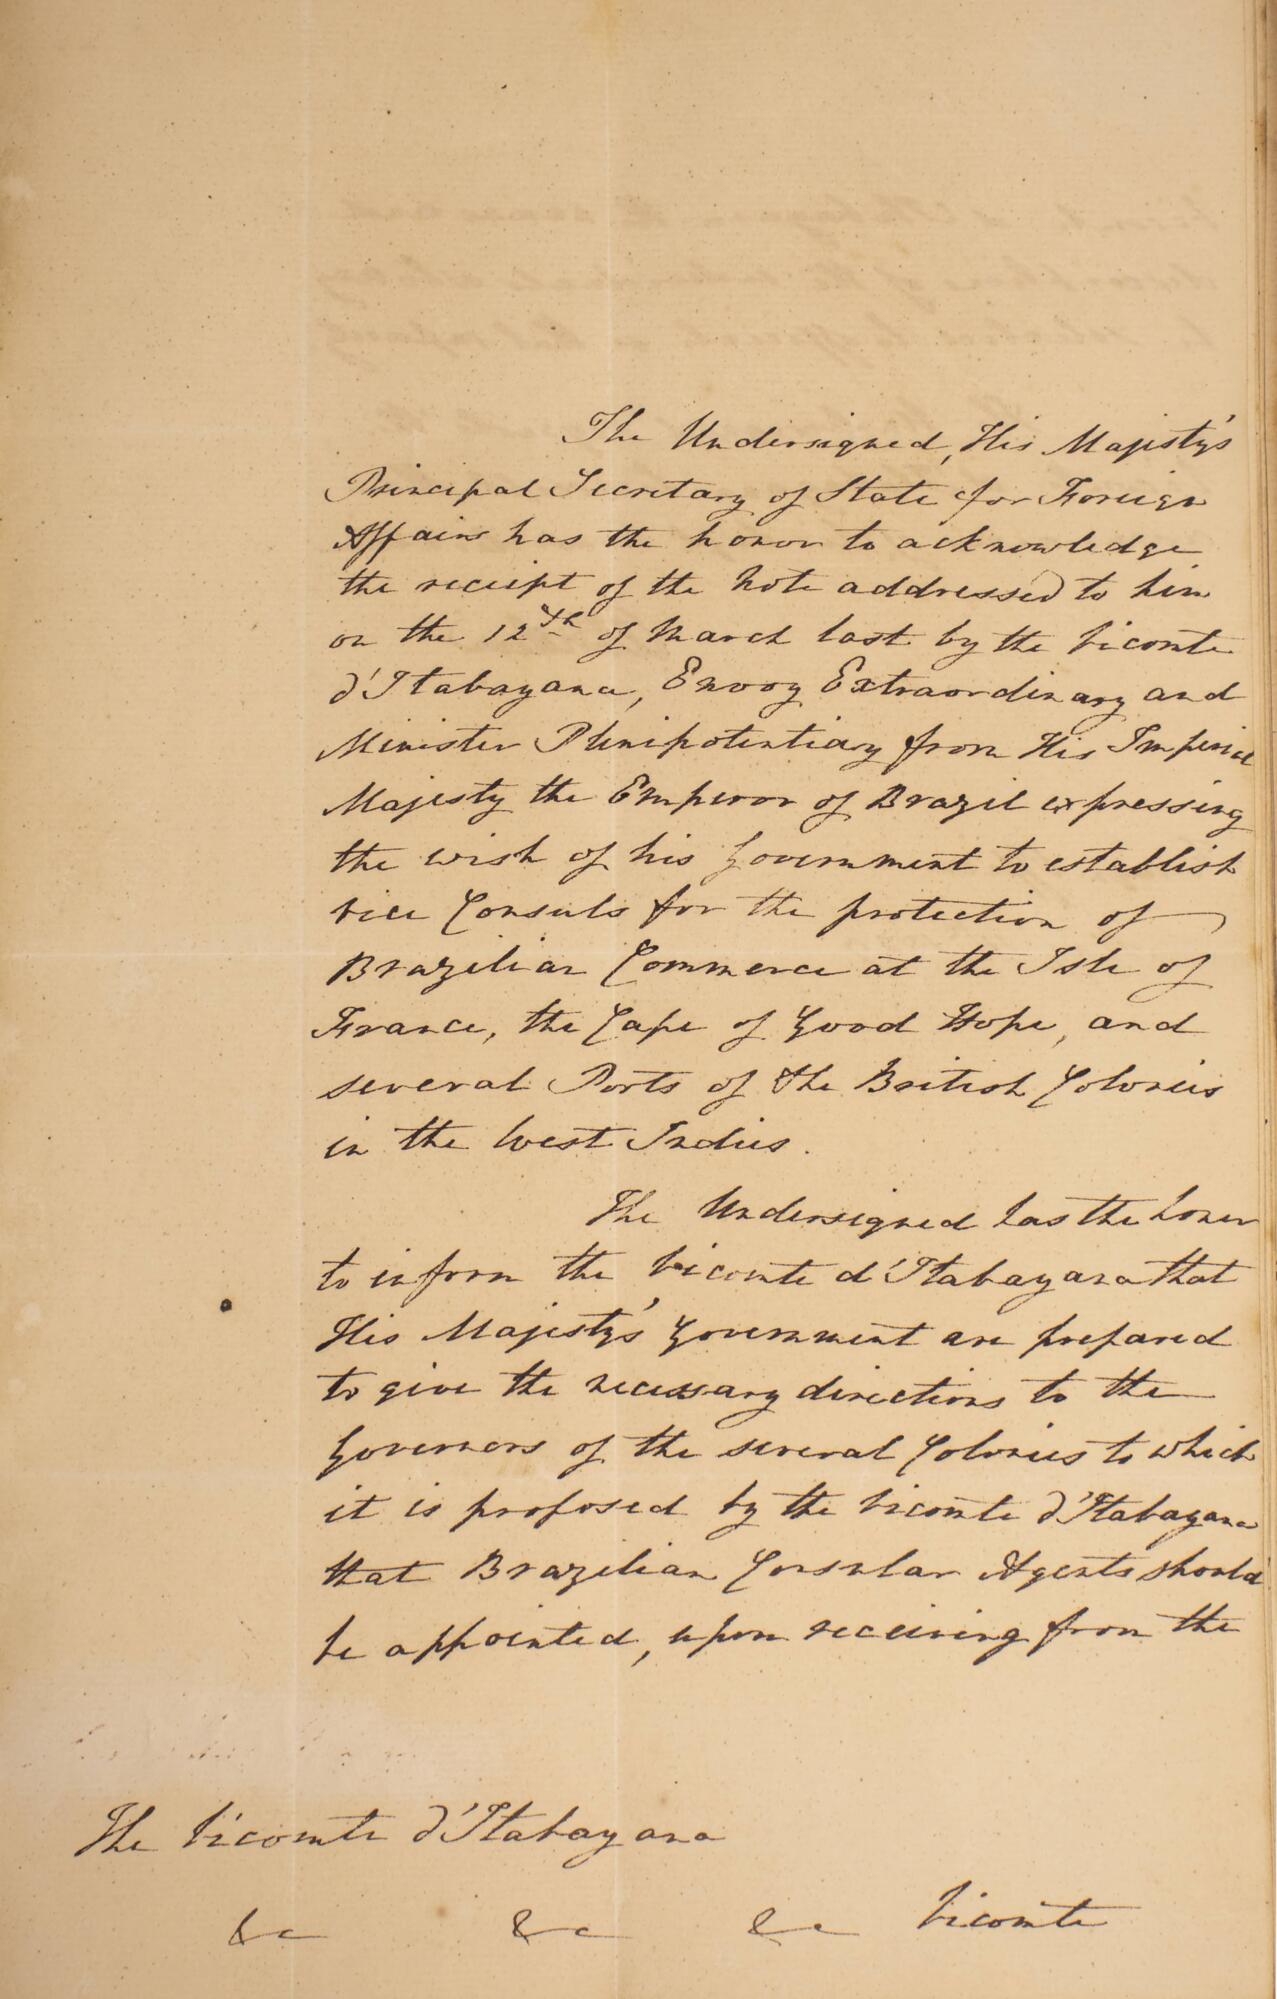 The Undersigned, His Majesty's
Principal Secretary of State for Foreign
Affairs has the honor to acknowledge
the receipt of the Note addressed to him
on the 12th of March last by the Vicomte
d'Itabayana, Envoy Extraordinary and
Minister Plenipotentiary from His Imperial
Majesty the Emperor of Brazil expressing
the wish of his Government to establish
Vice Consuls for the protection of
Brazilian Commerce at the Isle of
France, the Cape of Good Hope, and
several Ports of the British Colonies
in the West Indies.
The Undersigned has the honor
to inform the Vicomte d'Itabayana that
His Majesty's Government are prepared
to give the necessary directions to the
Governors of the several Colonies to which
it is proposed by the Vicomte d'Itabayana
that Brazilian Consular Agents should
be appointed, upon receiving from the
The Vicomte d'Itabayana
&c &c &c Vicomte